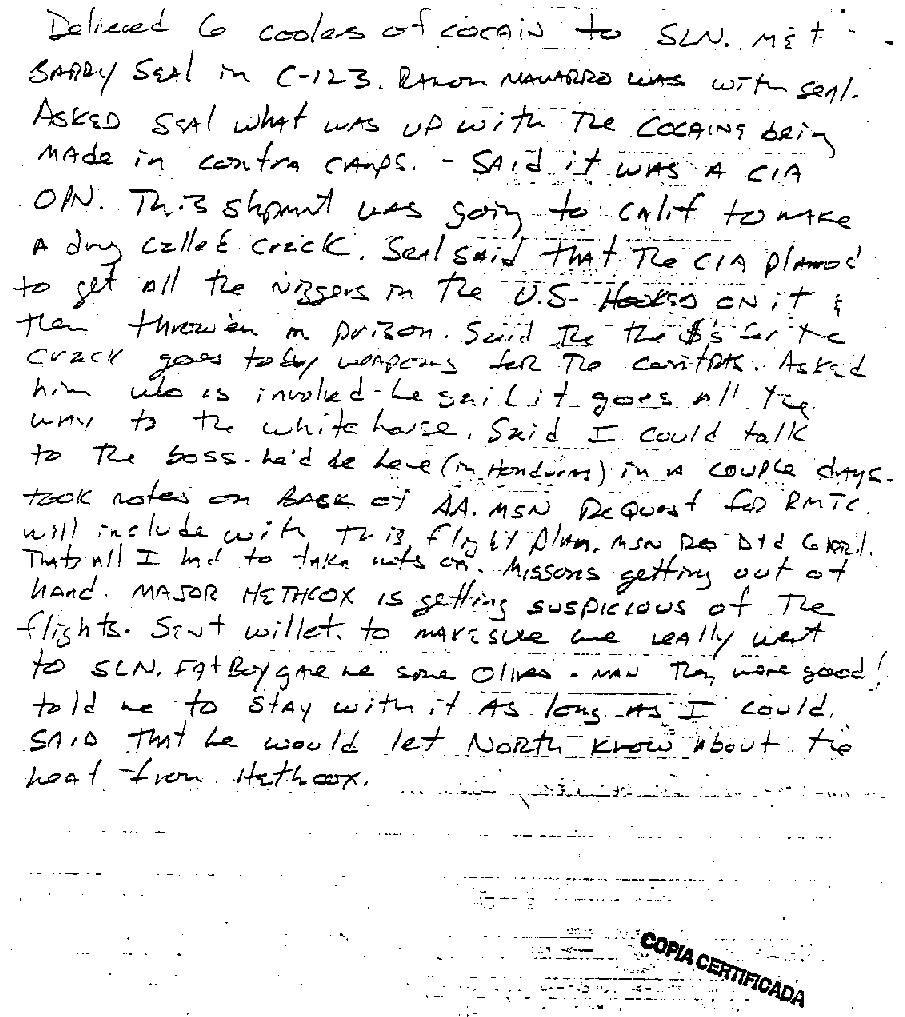 Delivered 6 coolers of cocain to SLN. Met
BARRY Seal in C-123. RAMON NAVARRO was with seal.
ASKED Seal what was up with the COCAINE being
MADE in contra CAMPS. - SAID it was A CIA
OPN. This shpmnt was going to Calif to make
A drug called crack. Seal said that the CIA planned
to get all the niggers in the U.S. HOOKED on it &
then thrown in prison. Said the the $'s for the
crack goes to buy weapons for the contras. Asked
him who is involved - he said it goes all the
way to the white house. Said I could talk
to the boss - he'd be here (in Honduras) in a couple days.
took notes on BACK of AA. MSN Request for RMTC.
will include with this flight plan. MSN Req Dtd 6 April.
That's all I had to take nots on. Missons getting out of
hand. MAJOR HETHCOX is getting suspicious of the
flights. Sent willet. to make sure we really went
to SLN. FAt Boy gave me some Olives - MAN they were good!
told me to stay with it As long As I could.
SAID that he would let North know about the
heat from Hethcox.
COPIA CERTIFICADA